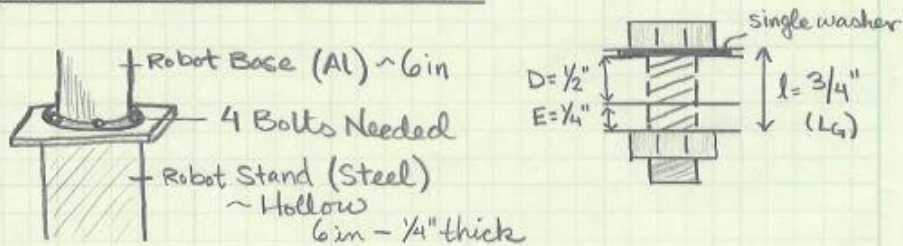 Robot Base (Al) ~ 6in
4 Bolts Needed
Robot Stand (Steel)
~ Hollow
6in - 1/4" thick
single washer
D= 1/2"
E= 1/4"
l= 3/4"
(LG)